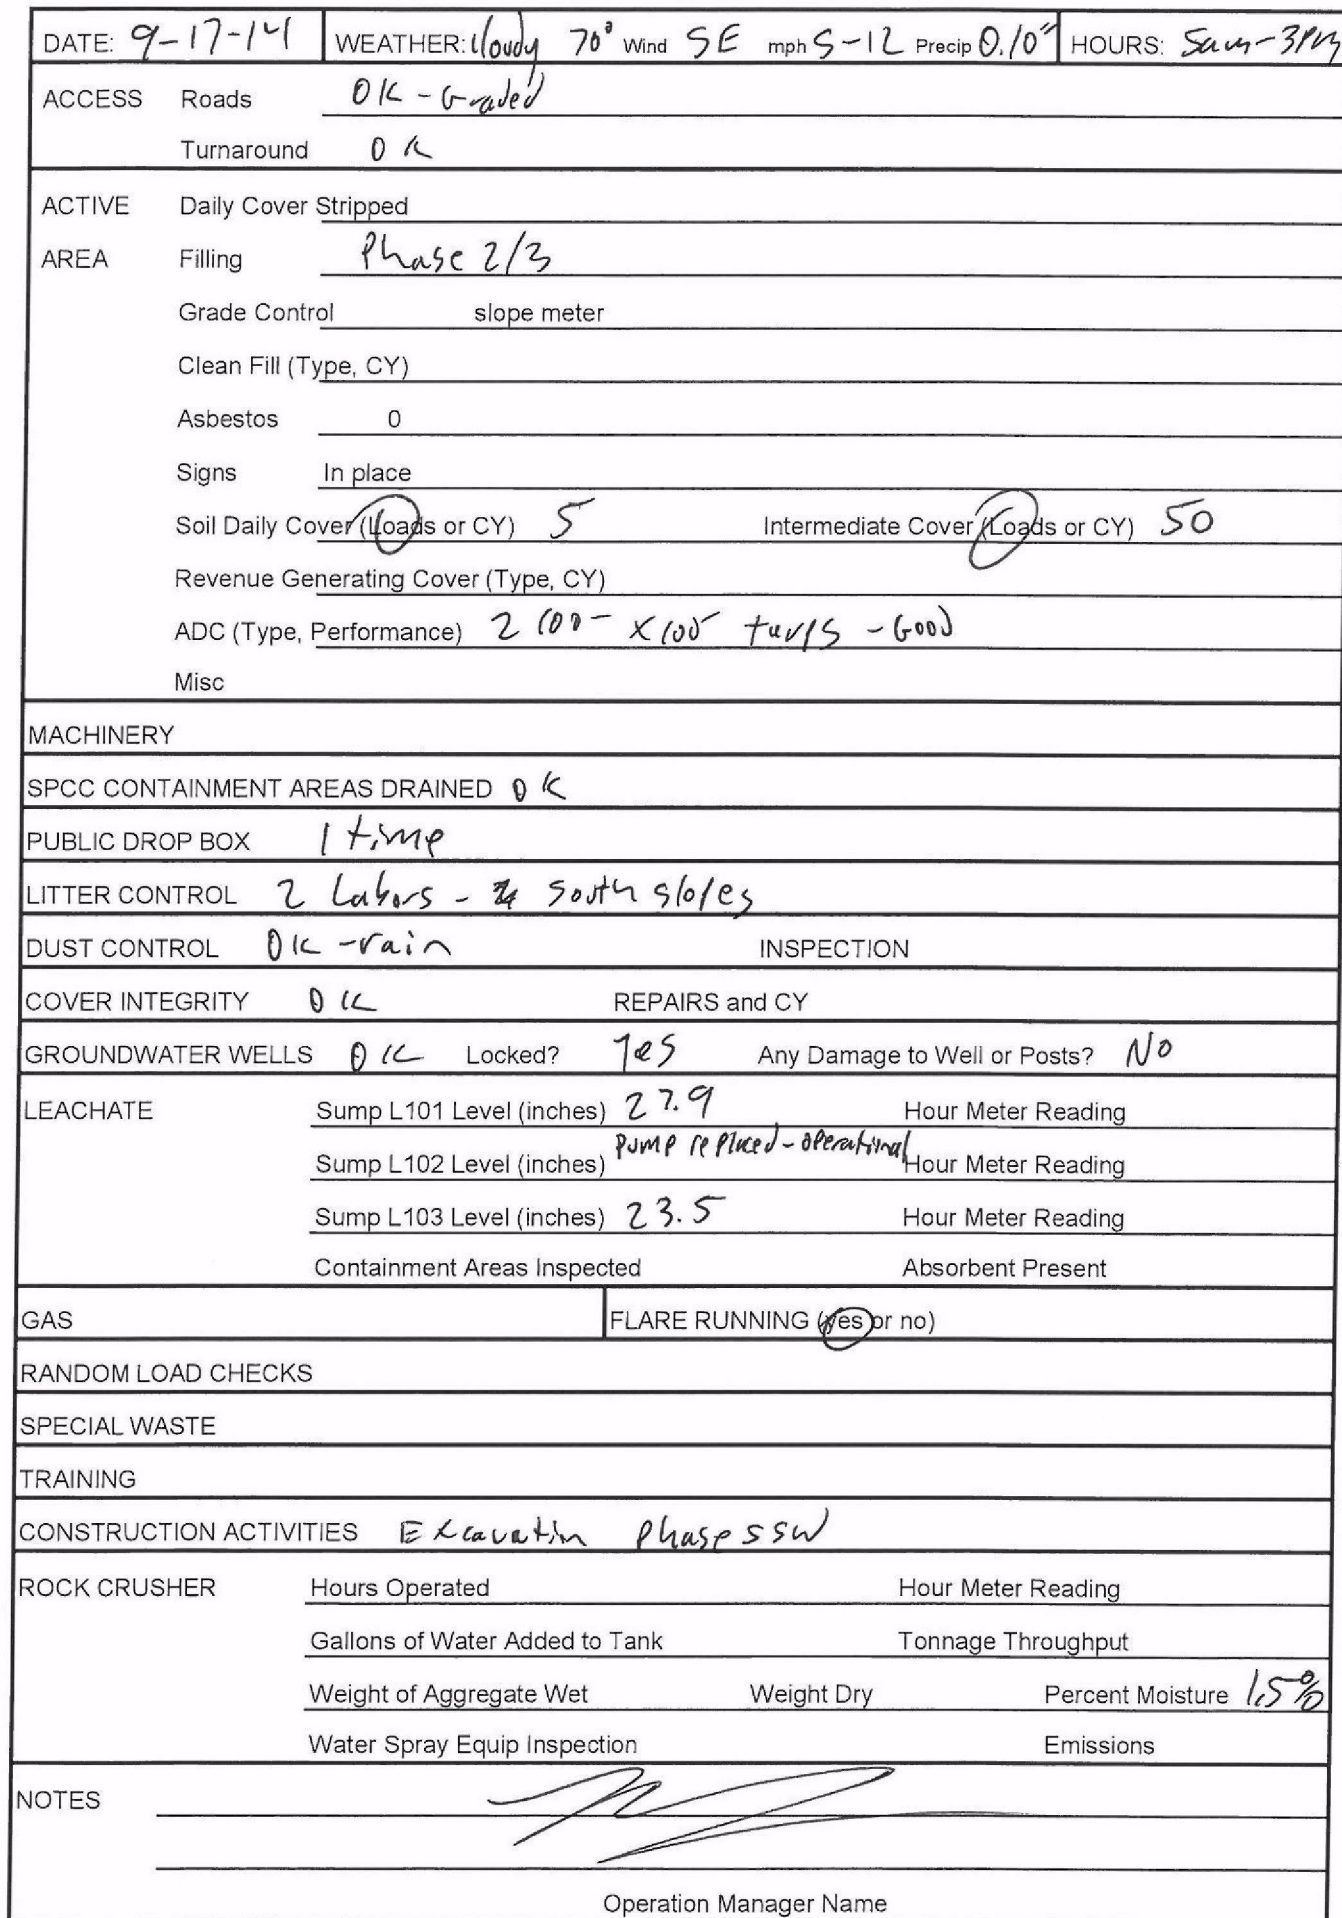 DATE: 9-17-14 WEATHER: Cloudy 70° Wind SE mph 5-12 Precip 0.10" HOURS: 5am-3PM
ACCESS Roads OK - Graded
Turnaround OK
ACTIVE Daily Cover Stripped
AREA Filling Phase 2/3
Grade Control slope meter
Clean Fill (Type, CY)
Asbestos 0
Signs In place
Soil Daily Cover (Loads or CY) 5 Intermediate Cover (Loads or CY) 50
Revenue Generating Cover (Type, CY)
ADC (Type, Performance) 2 100- x100 tarps - Good
Misc
MACHINERY
SPCC CONTAINMENT AREAS DRAINED OK
PUBLIC DROP BOX 1 time
LITTER CONTROL 2 Labors - south slopes
DUST CONTROL OK - rain INSPECTION
COVER INTEGRITY OK REPAIRS and CY
GROUNDWATER WELLS OK Locked? Yes Any Damage to Well or Posts? NO
LEACHATE Sump L101 Level (inches) 27.9 Hour Meter Reading
Sump L102 Level (inches) Pump replaced - operational Hour Meter Reading
Sump L103 Level (inches) 23.5 Hour Meter Reading
Containment Areas Inspected Absorbent Present
GAS FLARE RUNNING (yes or no)
RANDOM LOAD CHECKS
SPECIAL WASTE
TRAINING
CONSTRUCTION ACTIVITIES Excavation Phase 5SW
ROCK CRUSHER Hours Operated Hour Meter Reading
Gallons of Water Added to Tank Tonnage Throughput
Weight of Aggregate Wet Weight Dry Percent Moisture 1.5%
Water Spray Equip Inspection Emissions
NOTES
Operation Manager Name